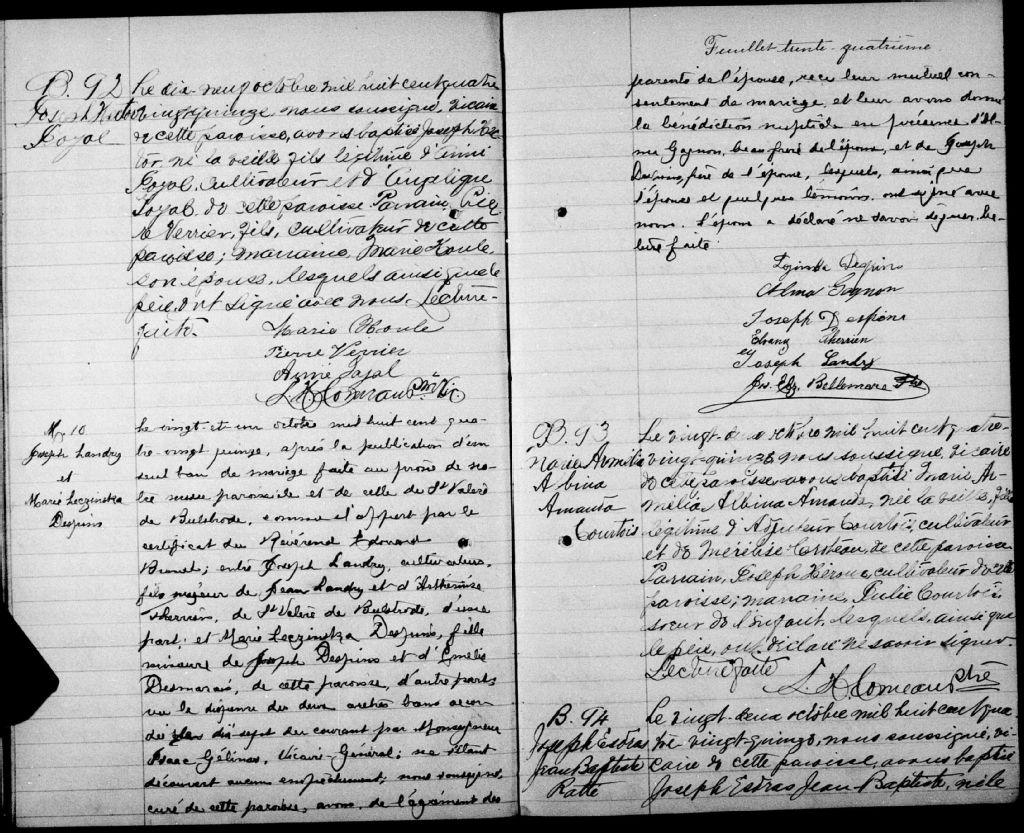 B. 92
Joseph Hector
Loyal
Le dix-neuf octobre mil huit cent quatre
vingt-quinze nous soussigné, vicaire
de cette paroisse, avons baptisé Joseph Hec-
tor, né la veille, fils légitime d'Aimé
Loyal, cultivateur et d'Angelique
Loyal de cette paroisse. Parrain,
Verrier, fils, cultivateur de cette
paroisse; marraine, Marie Houle,
son épouse, lesquels ainsi que le
père, ont signé avec nous. Lecture
faite.
Marie Houle
Pierre Verrier
Aimé Loyal
L. H. Comeau Ptre Vic.
M. 10
Joseph Landry
et
Marie Leczinska
Despins
Le vingt-et-un octobre mil huit cent qua-
tre-vingt quinze, après la publication d'un
seul ban de mariage faite au prône de no-
tre messe paroissiale et de celle de St Valère
de Bulstrode, comme il appert par le
certificat du Révérend Edouard
Brunel; entre Joseph Landry, cultivateur,
fils majeur de Jean Landry et d'Arthémise
Therrien, de St Valère de Bulstrode, d'une
part; et Marie Leczinska Despins, fille
mineure de Joseph Despins et d'Emélie
Desmarais, de cette paroisse, d'autre part;
vu la dispense des deux autres bans accor-
dée dix-sept du courant par Monseigneur
Isaac Gélinas, Vicaire Général; ne s'étant
découvert aucun empêchement; nous soussigné,
curé de cette paroisse, avons, de l'agrément des
Feuillet trente-quatrième
parents de l'épouse, reçu leur mutuel con-
sentement de mariage, et leur avons donné
la bénédiction nuptiale en présence d'Al-
ma Gagnon, beau frère de l'époux, et de Joseph
Despins, père de l'épouse, lesquels, ainsi que
l'épouse et quelques témoins, ont signé avec
nous. L'époux a déclaré ne savoir signer. Lec-
ture faite.
Leczinska Despins
Alma Gagnon
Joseph Despins
Therrien
Joseph Landry
Jos. Elz. Bellemare Ptre
B. 93
Marie Armélia
Albina
Amanda
Courtois
Le vingt-deux octobre mil huit cent quatre-
vingt-quinze nous soussigné, vicaire
de cette paroisse avons baptisé Marie Ar-
mélia Albina Amanda, née la veille, fille
légitime d'Adjuteur Courtois, cultivateur
et de Mérélise Croteau, de cette paroisse.
Parrain, Joseph Héroux, cultivateur de cette
paroisse; marraine, Julie Courtois
soeur de l'enfant, lesquels, ainsi que
le père, ont déclaré ne savoir signer.
Lecture faite
L. H. Comeau Ptre
B. 94
Joseph Esdras
Jean Baptiste
Ratté
Le vingt-deux octobre mil huit cent qua-
tre vingt-quinze, nous soussigné, vi-
caire de cette paroisse, avons baptisé
Joseph Esdras Jean-Baptiste, né le